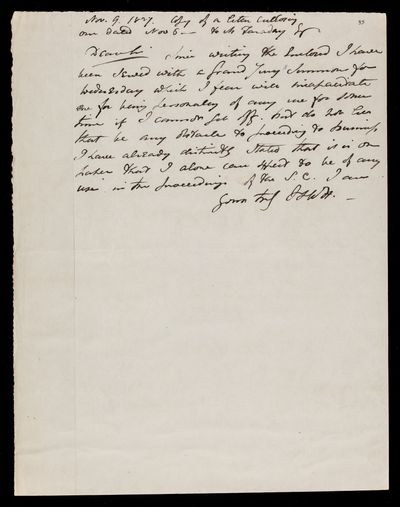 Nov. 9. 1827. Copy of a letter enclosing 35
one dated Nov 6 — to M. Faraday Esq
Dear Sir Since writing the enclosed I have
been served with a Grand Jury Summons for
Wednesday which I fear will incapacitate
me for being personally of any use for some
time if I cannot get off. But do not let
that be any obstacle to proceeding to business
I have already distinctly stated that it is on
paper that I alone can expect to be of any
use in the proceedings of the S.C. I am
Yours truly JFWH. —